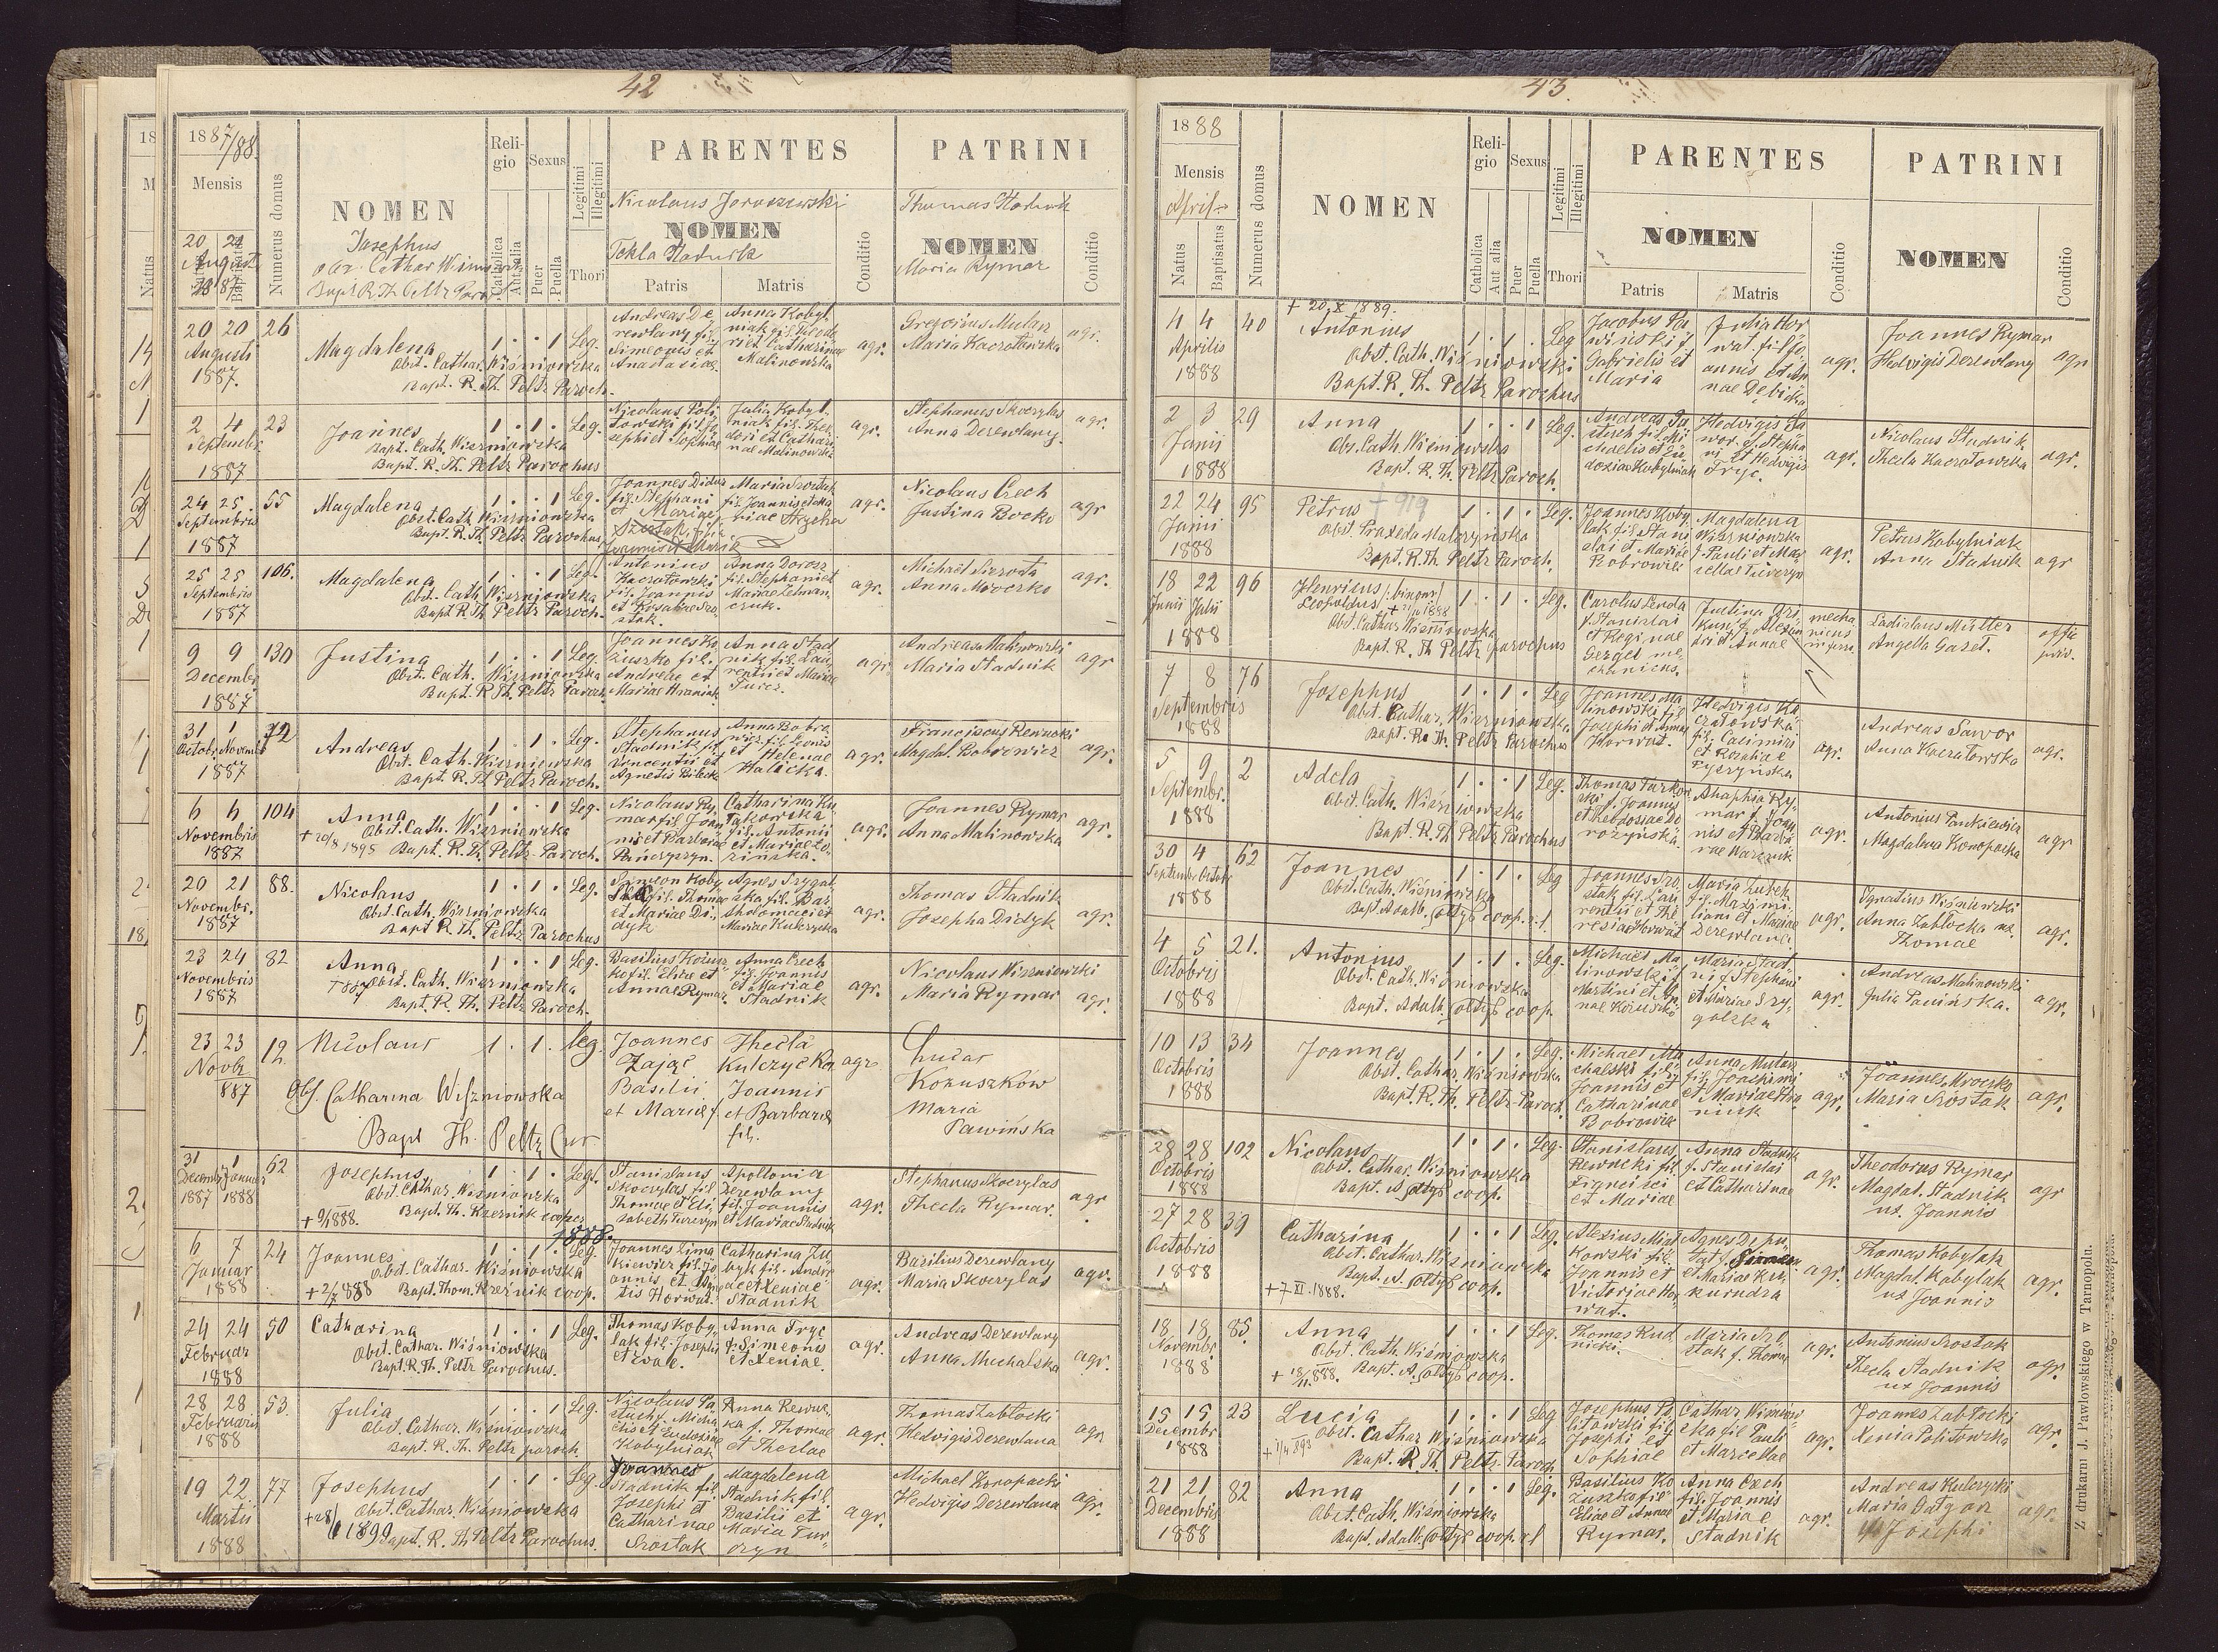 42
1887/88.
Mensis
Numerus domus
NOMEN
Religio
Sexus
Catholica
Aut alia
Puer
Puella
Legitimi
Illegitimi
Thori
PARENTES
Nicolaus Joroszewski
NOMEN
Tekla Stadnik
Patris
Matris
Conditio
PATRINI
NOMEN
Maria Rymar
Conditio
20 21
August
Josephus
20 20 26
Augusti
1887.
Magdalena 1 . . 1 Leg.
Obst. Cathar. Wiśniowska
Bapt. R. Th. Peltz Paroch.
Andreas De
rewlany fil.
Simeonis et
Anastasiae
Anna Kobyl
niak fil. Theodo
ri et Catharinae
Malinowska
agr.
Gregorius Mularz
Maria Kaczatowska
agr.
2 4 23
Septembr.
1887
Joannes 1 . 1 . Leg.
Bapt. Cath. Wiszniowska
Bapt. R. Th. Peltz Parochus
Nicolaus Poli
towski fil. Jo
sephi et Sophiae
Julia Kobyl
niak fil. Theo
dori et Cathari
nae Malinowski
agr.
Stephanus Skoczylas
Anna Derewlany
agr.
24 25 55
Septembris
1887
Magdalena 1 . . 1 Leg.
Obst. Cath. Wiszniowska
Bapt. R. Th. Peltz Parochus
Joannes Didur
fil. Stephani
et Mariae
Maria Szostak
fil. Joannis et Ma
riae Hrycha
agr.
Nicolaus Czech
Justina Bocko
agr
25 25 106.
Septembris
1887
Magdalena 1 . . 1 Leg.
Obst. Cath. Wiszniowska
Bapt. R. Th. Peltz Paroch.
Antonius
Kaczatowski
fil. Joannis
et Rosaliae Szo
stak.
Anna Dorosz
fil. Stephani et
Mariae
agr.
Michael Szzosta
Anna Mroczko
agr.
9 9 130
Decembr.
1887
Justina 1 . . 1 Leg.
Obst. Cath. Wiszniowska
Bapt. R. Th. Peltz Paroch.
Joannes Ko
zuszko fil.
Andreae et
Mariae Hraniak
Anna Stad
nik fil. Lau
rentii et Mariae
Turcz.
agr.
Andreas Malinowski
Maria Stadnik
agr
31 1 72
Octobr. Novemb
1887
Andreas 1 . 1 . Leg.
Obst. Cath. Wiszniewska
Bapt. R. Th. Peltz Paroch.
Stephanus
Stadnik fil.
Vincentii et
Agnetis Bilecka
Anna Bobro
wicz fil. Leonis
et Helenae
Halicka.
agr.
Franciscus Rewucki
Magdal. Bobrowicz
agr.
6 6 104
Novembris
1887
Anna 1 . . 1 Leg.
Obst. Cath. Wiszniewska
+ 20/8 1895 Bapt. R. Th. Peltz Paroch.
Nicolaus Ry
mar fil. Joan
nis et Barbarae
Catharina Ku
fil. Antonii
et Mariae
agr.
Joannes Rymar
Anna Malinowska
agr.
20 21 88.
Novembr.
1887
Nicolaus 1 . 1 . Leg.
Obst. Cath. Wiszniowska
Bapt. R. Th. Peltz Parochus
Simeon Koby
fil. Thomae
et Mariae Di
dyk
Agnes Szygal
ska fil. Bar
tholomaei et
Mariae Kulczycka
agr.
Thomas Stadnik
Josepha Didyk
agr.
23 24 82
Novembris
1887
Anna 1 . . 1 Leg.
Obst. Cath. Wiszniowska
Bapt. R. Th. Peltz Paroch.
Basilius Kozusz
ko fil. Eliae et
Annae Rymar
Anna Czech
fil. Joannis
et Mariae
Stadnik
agr.
Nicolaus Wiszniewski
Maria Rymar
agr.
23 23 12
Novbr
887
Nicolaus 1 . 1 . leg.
Obst. Catharina Wiszniowska
Bapt Th. Peltz Cur
Joannes
Zając
Basilii
et Mariae f.
Thecla
Kulczycka
Joannis
et Barbarae
fil.
agr.
Lucas
Kozuszków
Maria
Pawińska
31 1 62
Decemb. Januar
1887 1888
Josephus 1 . 1 . Leg.
Obst. Cathar. Wiśniowska
Bapt. Th. Krzesnik cooper
+ 9/1 888.
Stanislaus
Skoczylas fil.
Thomae et Eli
sabeth Turczyn
Apollonia
Derewlany
fil. Joannis
et Mariae Stadnik
agr.
Stephanus Skoczylas
Thecla Rymar.
agr
1888.
6 7 24
Januar
1888
Joannes 1 . 1 . Leg.
Obst. Cathar. Wiśniowska
Bapt. Thom. Krzesnik coop.
Joannes Zima
kiewicz fil. Jo
annis et
Horwat.
Catharina Zu
byk fil. Andre
ae et Xeniae
Stadnik
agr.
Basilius Derewlany
Maria Skoczylas
agr.
24 24 50
Februar
1888
Catharina 1 . . 1 Leg.
Obst. Cathar. Wiśniowska
Bapt. R. Th. Peltz Parochus.
Thomas Koby
lak fil. Josephi
et Evae.
Anna Fryc
f. Simeonis
et Xeniae.
agr.
Andreas Derewlany
Anna Michalska
agr.
28 28 53.
Februarii
1888
Julia 1 . . 1 Leg.
Obst. Cathar. Wiśniowska
Bapt. R. Th. Peltz paroch
Nicolaus Pa
stuch f. Micha
elis et Eudoxiae
Kobylniak
Anna Rewuc
ka f. Thomae
et Theclae
agr.
Thomas Zabłocki
Hedvigis Derewlana
agr
19 22 77
Martii
1888
Josephus 1 . 1 . Leg.
Obst. Cathar. Wiśniowska
+28/6 1899 Bapt. R. Th Peltz Parochus.
Joannes
Stadnik fil.
Josephi et
Catharinae
Szostak
Magdalena
Stadnik fil.
Basilii et
Maria Tur
czyn
agr.
Michael Konopacki
Hedvigis Derewlana
agr.
43.
1888
Mensis
April
Natus
Baptisatus
Numerus domus
NOMEN
Religio
Sexus
Catholica
Aut alia
Puer
Puella
Legitimi
Illegitimi
Thori
PARENTES
NOMEN
Patris
Matris
Conditio
PATRINI
NOMEN
Conditio
4 4 40
Aprilis
1888
+ 20/X 1889.
Antonius 1 . 1 . Leg
Obst. Cath. Wiśniowski
Bapt. R. Th. Peltz Parochus
Jacobus Pa
wiński f.
Gabrielis et
Maria
Julia Hor
wat. fil. Jo
annis et An
nae Dębicka
agr.
Joannes Rymar
Hedvigis Derewlany
agr
2 3 29
Junii
1888
Anna 1 . . 1 Leg.
Obs. Cath. Wiśniowska
Bapt. R. Th. Peltz Paroch.
Andreas Pa
stuch fil. Mi
chaelis et Eu
doxia Kobylniak
Hedvigis Sa
wor. f. Stepha
ni et Hedvigis
Fryc.
agr.
Nicolaus Stadnik
Thecla Kaczatowska
agr.
22 24 95
Junii
1888
Petrus + 919 1 . 1 . Leg.
Obst. Praxeda Malczyńska
Bapt. R. Th Peltz Paroch.
Joannes Koby
lak fil. Stani
slai et Mariae
Bobrowicz
Magdalena
Wiszniowska
f. Pauli et Mar
cellae Turczyn
agr.
Petrus Kobylniak
Anna Stadnik
agr
18 22 96
Junii Julii
1888
Henricus /: binom:/
Leopoldus 1 . 1 . Leg.
Obst. Cathar Wiśniowska
Bapt. R. Th Peltz parochus
Carolus Lenda
f. Stanislai
et Reginae
Gergel me
chanicus.
Justina
f. Alexan
dri et Annae
mecha
nicus
Ladislaus Müller
Angella Gazet.
offic
priv.
7 8 76
Septembris
1888
Josephus 1 . 1 . Leg
Obst. Cathar. Wiszniowska
Bapt. R. Th. Peltz Parochus
Joannes Ma
linowski fil
Josephi et Annae
Horwat.
Hedvigis Ka
czatowska
fil. Casimiri
et Rosaliae
agr.
Andreas Sawor
Anna Kaczatowska
agr.
5 9 2
Septembr.
1888
Adela 1 . . 1 Leg.
Obst. Cath. Wiśniowska
Bapt. R. Th Peltz Parochus
Thomas Turkow
ski f. Joannis
et Theodosiae Do
rozyńska.
Ahaphia Ry
mar f. Joan
nis et Barba
rae
agr.
Antonius Pankiewicz
Magdalena Konopacka
agr
30 4 62
Septembr. Octobr
1888
Joannes 1 . 1 . Leg
Obst. Cath. Wiśniowska
Bapt. Adalb. Sołtys coop. r. l.
Joannes Szo
stak fil. Lau
rentii et The
resiae Horwat
Maria Zubek
fil. Maximi
liani et Mariae
Derewlana
agr.
Ignatius Wiśniewski
Anna Zabłocka ux.
Thomae
agr.
4 5 21.
Octobris
1888
Antonius 1 . 1 . Leg.
Obst. Cath. Wiśniowska
Bapt. Adalb. Sołtys coop.
Michael Ma
linowski f.
Martini et An
nae Kozuszko
Maria Stad
nik f. Stephani
et Mariae Szy
galska
agr.
Andreas Malinowski
Julia Pawińska.
agr.
10 13 34
Octobris
1888
Joannes 1 . 1 . Leg.
Obst. Cathar. Wiśniowska
Bapt. R. Th. Peltz Paroch.
Michael Mi
chalski fil.
Joannis et
Catharinae
Bobrowicz
Anna Mular
fil. Joachimi
et Mariae Hra
niuk
agr.
Joannes Mroczko
Maria Szostak
agr.
28 28 102
Octobris
1888
Nicolaus 1 . 1 . Leg
Obst. Cathar. Wiśniowska
Bapt. A Sołtys coop.
Stanislaus
Rewucki fil.
Francisci
et Mariae
Anna Stadnik
f. Stanislai
et Catharinae
agr.
Theodorus Rymar
Magdal. Stadnik
ux. Joannis
agr
27 28 39
Octobris
1888
Catharina 1 . . 1 Leg.
Obst. Cathar. Wiśniowska
Bapt. A. Sołtys coop.
+ 7 XI. 1888.
Alexius Mia
kowski fil.
Joannis et
Victoriae Hor
wat.
Agnes Depu
tat f. Simeon
et Mariae Ku
kurudza
agr.
Thomas Kobylak
Magdal. Kobylak
ux Joannis
agr.
18 18 85
Novembr.
1888
Anna 1 . . 1 Leg.
Obst. Cath. Wiśniowska
Bapt. A. Sołtys coop.
+ 18/11.888.
Thomas Rud
nicki.
Maria Szo
stak f. Thomae
agr.
Antonius Szostak
Thecla Stadnik
ux Joannis
agr.
15 15 23
Decembr.
1888
Lucia 1 . . 1 Leg
Obst. Cathar Wiśniowska
Bapt. R. Th. Peltz Paroch
Josephus Po
litowski fil.
Josephi et
Sophiae
Cathar. Wiśniow
ska fil. Pauli
et Marcellae
agr.
Joannes Zabłocki
Xenia Politowska
agr.
21 21 82
Decembris
1888
Anna 1 . . 1 Leg.
Obst. Cath. Wiśniowska
Bapt. Adalb. Sołtys coop. r l
Basilius Ko
zuszko fil
Eliae et Annae
Rymar.
Anna Czech
fil. Joannis
et Mariae
Stadnik
agr.
Andreas Kulczycki
Maria
ux Josephi
agr.
Z drukarni J. Pawłowskiego w Tarnopolu.